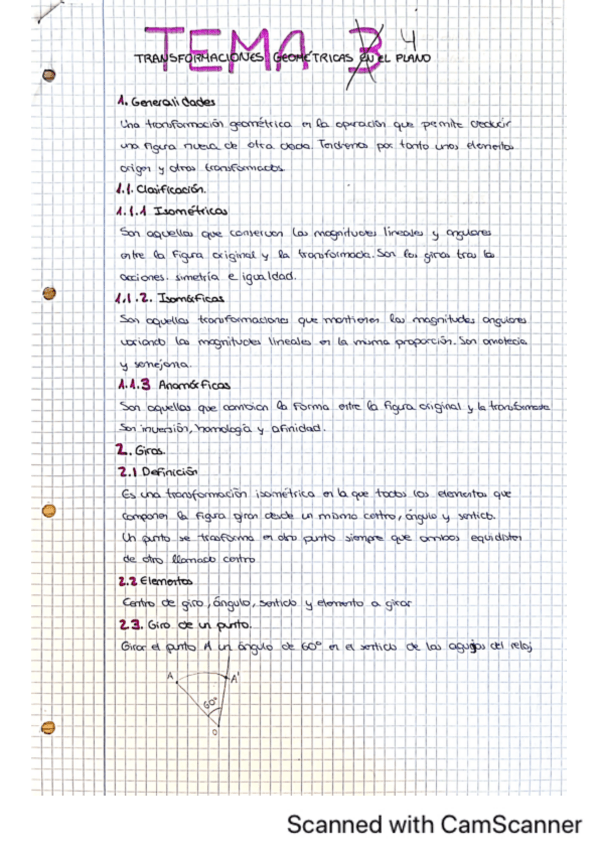 TEMA 3 4
TRANSFORMACIONES GEOMÉTRICAS EN EL PLANO
1. Generalidades
Una transformación geométrica es la operación que permite deducir
una figura nueva de otra dada. Tendremos por tanto unos elementos
origen y otros transformados
1.1. Clasificación.
1.1.1 Isométricas
Son aquellas que conservan las magnitudes lineales y angulares
entre la figura original y la transformada. Son los giros tras la
ciones. simetría e igualdad.
1.1.2. Isomórficas
Son aquellas transformaciones que mantienen las magnitudes angulares
variando las magnitudes lineales en la misma proporción. Son
y semejanza.
1.1.3 Anamórficas
Son aquellas que cambian la forma entre la figura original y la transformada
Son inversión, homología y afinidad.
2. Giros.
2.1 Definición
Es una transformación isométrica en la que todos los elementos que
componen la figura giran desde un mismo centro, ángulo y sentido.
Un punto se trasforma en otro punto siempre que ambos equidisten
de otro llamado centro
2.2 Elementos
Centro de giro, ángulo, sentido y elemento a girar
2.3. Giro de un punto.
Girar el punto A un ángulo de 60° en el sentido de las agujas del reloj
A
A'
60°
O
Scanned with CamScanner